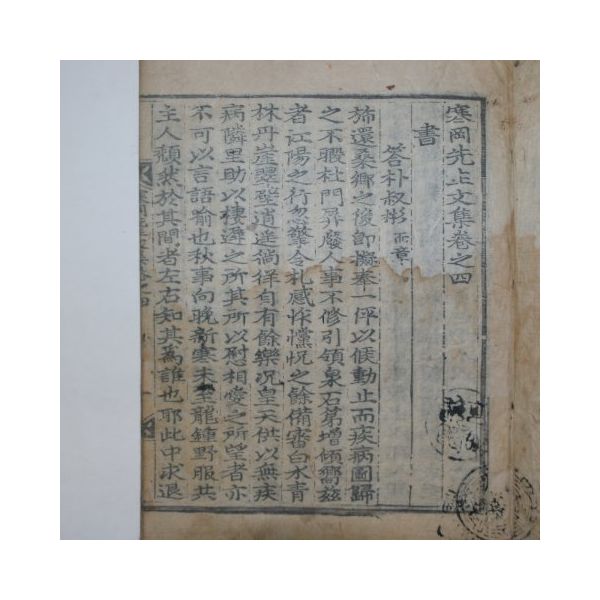 寒岡先生文集卷之四
書
答朴叔彬 而章
旆還桑鄉之後卽擬奉一伻以候動止而疾病圖歸
之不暇杜門屛廢人事不修引領泉石第增傾嚮玆
者江陽之行忽擎令札感怍戃怳之餘備審白水靑
林丹崖翠壁逍遙徜徉自有餘樂况皇天供以無疾
病隣里助以棲遲之所其所以慰相愛之所望者亦
不可以言語喩也秋事向晩新寒未至龍鍾野服共
主人頹然於其間者左右知其爲誰也耶此中求退